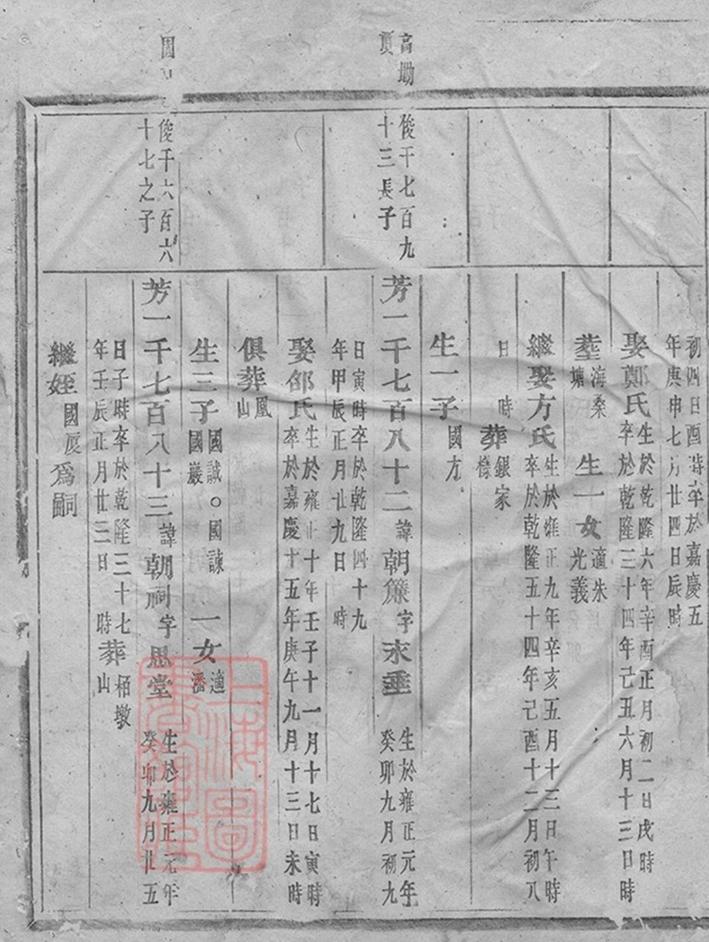 初四日酉時卒於嘉慶五
年庚申七月廿四日辰時
娶鄭氏生於乾隆六年辛酉正月初二日戌時
卒於乾隆三十四年己丑六月十三日時
塟海桑
塘
生一女適朱
光義
繼娶方氏生於雍正九年辛亥五月十三日午時
卒於乾隆五十四年己酉十二月初八
日 時葬銀家
生一子國方
高塘
俊千七百九
十三長子
芳一千七百八十二諱朝簾字永垂生於雍正元年
癸卯九月初九
日寅時卒於乾隆四十九
年甲辰正月廿九日 時
娶邵氏生於雍正十年壬子十一月十七日寅時
卒於嘉慶十五年庚午九月十三日未時
俱葬鳳
山
生三子國誠○國諫
國巖
一女適
潘
俊千六百六
十七之子
芳一千七百八十三諱朝祠字思堂生於雍正元年
癸卯九月廿五
日子時卒於乾隆三十七
年壬辰正月廿三日 時葬栢墩
山
繼姪國辰為嗣